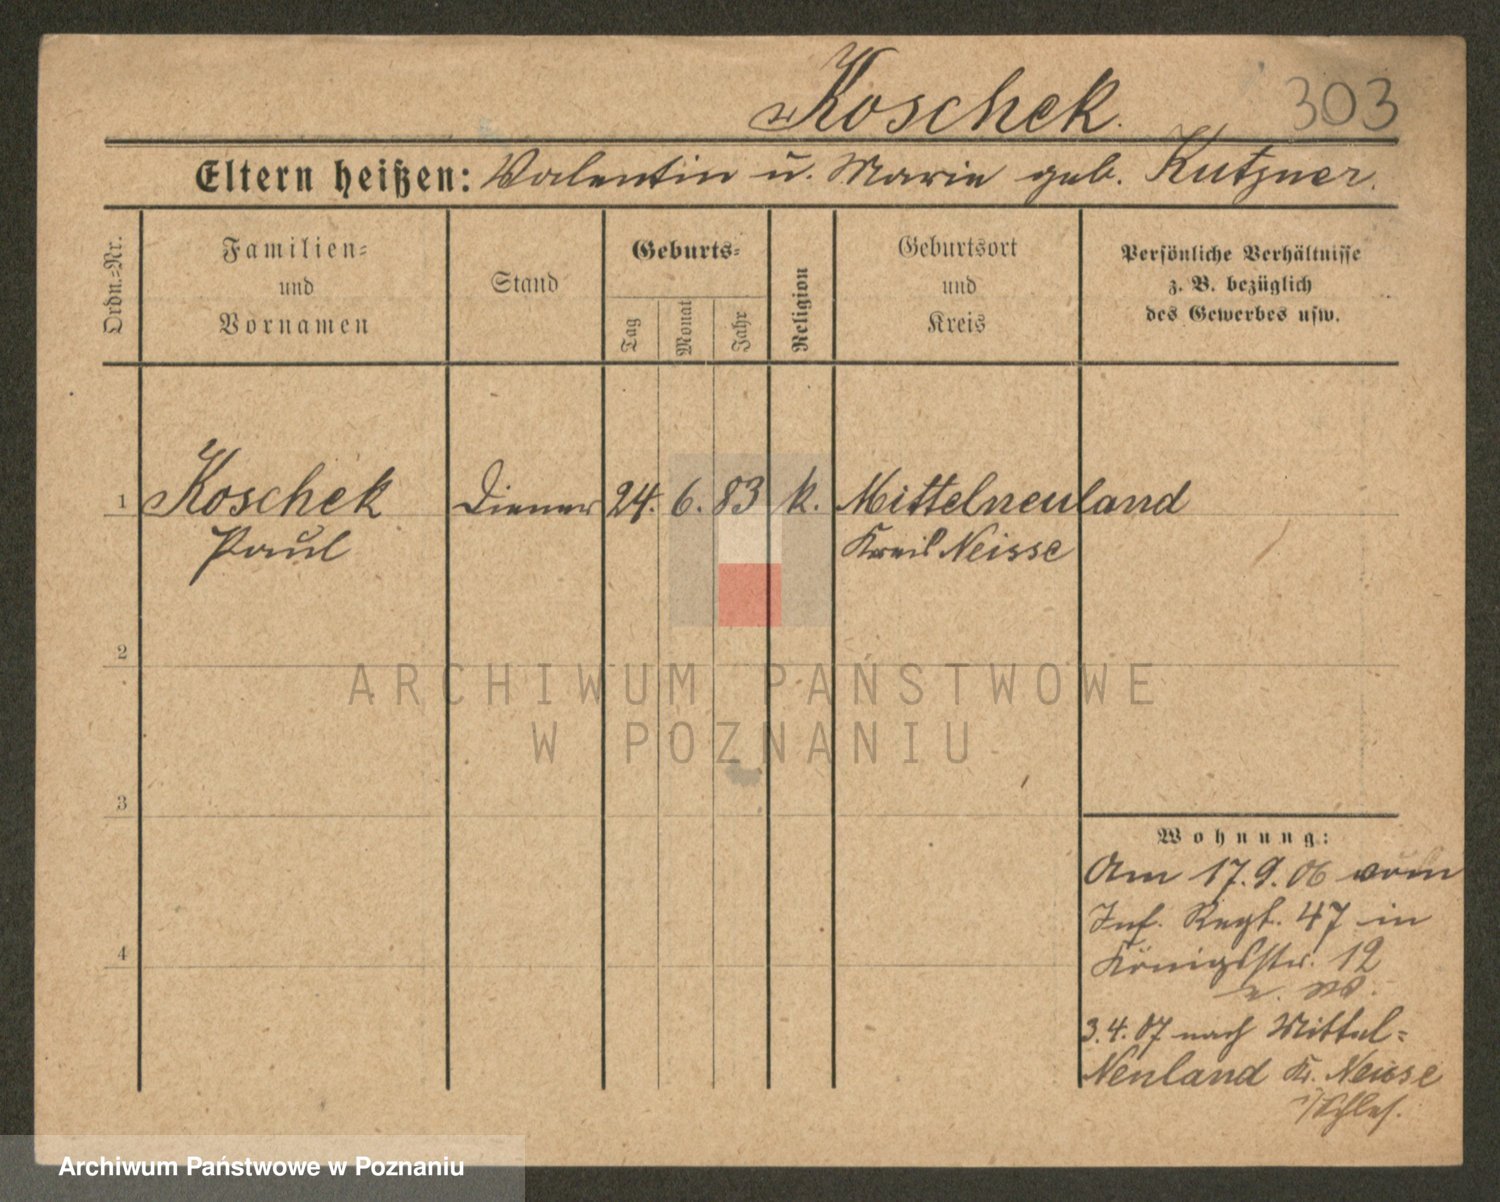 Koschek.
303
Eltern heißen: Valentin u. Marie geb. Kutzner.
Ordn.=Nr.
Familien=
und
Vornamen
Stand
Geburts=
Tag
Monat
Jahr
Religion
Geburtsort
und
Kreis
Persönliche Verhältnisse
z. B. bezüglich
des Gewerbes usw.
1 Koschek Diener 24. 6. 83 k. Mittelneuland
Paul Kreis Neisse
2
ARCHIWUM PAŃSTWOWE
W POZNANIU
3
Wohnung:
Am 17.9.06 vom
Inf. Regt. 47 in
Königsstr. 12
4
3.4.07 nach Mittel=
Neuland Kr. Neisse
i/Schles.
Archiwum Państwowe w Poznaniu